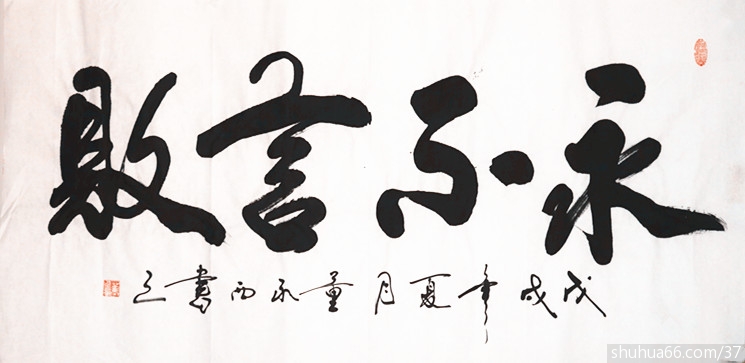 永不言敗
戊戌年夏月董永西書之
shuhua66.com/37